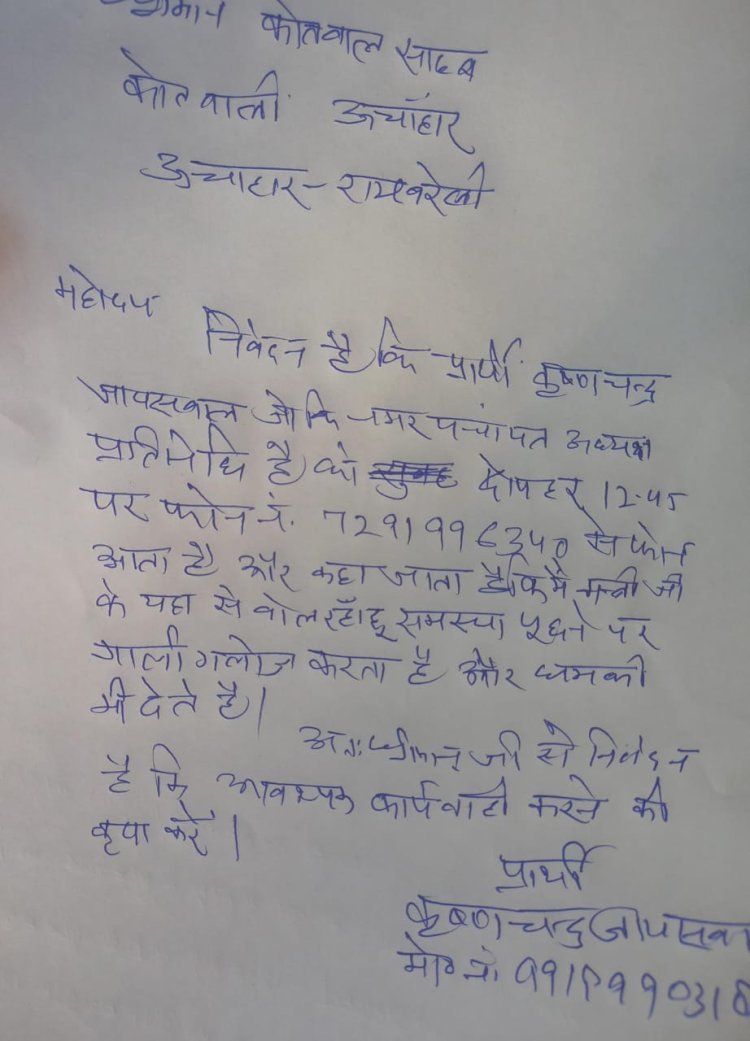 श्रीमान कोतवाल साहब
कोतवाली ऊचाँहार
ऊचाहार - रायबरेली
महोदय
निवेदन है कि प्रार्थी कृष्ण चन्द्र
जायसवाल जो कि नगर पंचायत अध्यक्ष
प्रतिनिधि है को दोपहर 12.45
पर फोन नं. 7291996340 से फोन
आता है और कहा जाता है कि मैं मन्त्री जी
के यहा से बोल रहाँ हू समस्या पूछने पर
गाली गलोज करता है और धमकी
भी देते है।
अतः श्रीमान् जी से निवेदन
है कि आवश्यक कार्यवाही करने की
कृपा करें।
प्रार्थी
कृष्ण चन्द्र जायसवा
मो० नं०